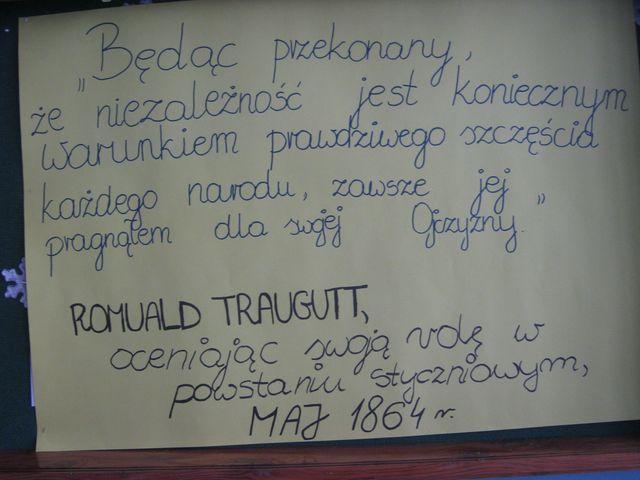 „Będąc przekonany,
że niezależność jest koniecznym
warunkiem prawdziwego szczęścia
każdego narodu, zawsze jej
pragnąłem dla swojej Ojczyzny."
ROMUALD TRAUGUTT,
oceniając swoją rolę w
powstaniu styczniowym,
MAJ 1864 r.